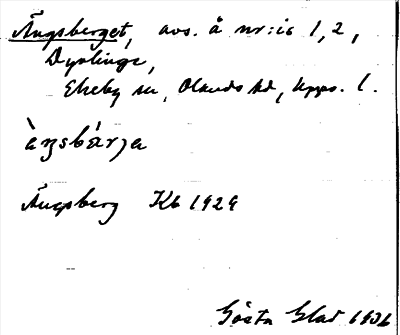 Ängsberget, avs. å nr:is 1, 2,
Dyvlinge,
Ekeby sn, Olands hd, Upps. l.
ängsbärja
Ängsberg Kb 1929
Gösta Glad 1936